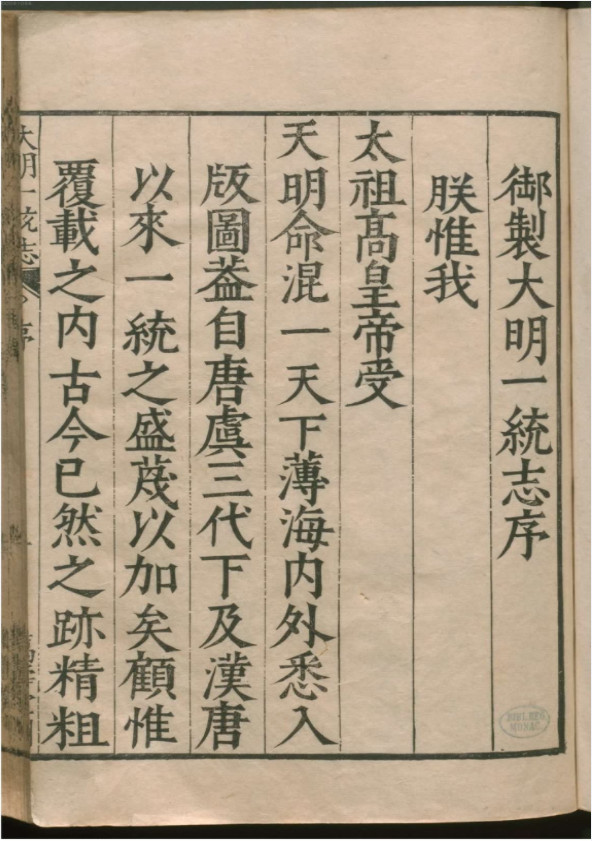 御製大明一統志序
朕惟我
太祖高皇帝受
天明命混一天下薄海内外悉入
版圖葢自唐虞三代下及漢唐
以來一統之盛蔑以加矣顧惟
覆載之内古今已然之跡精粗
大明一統志
序